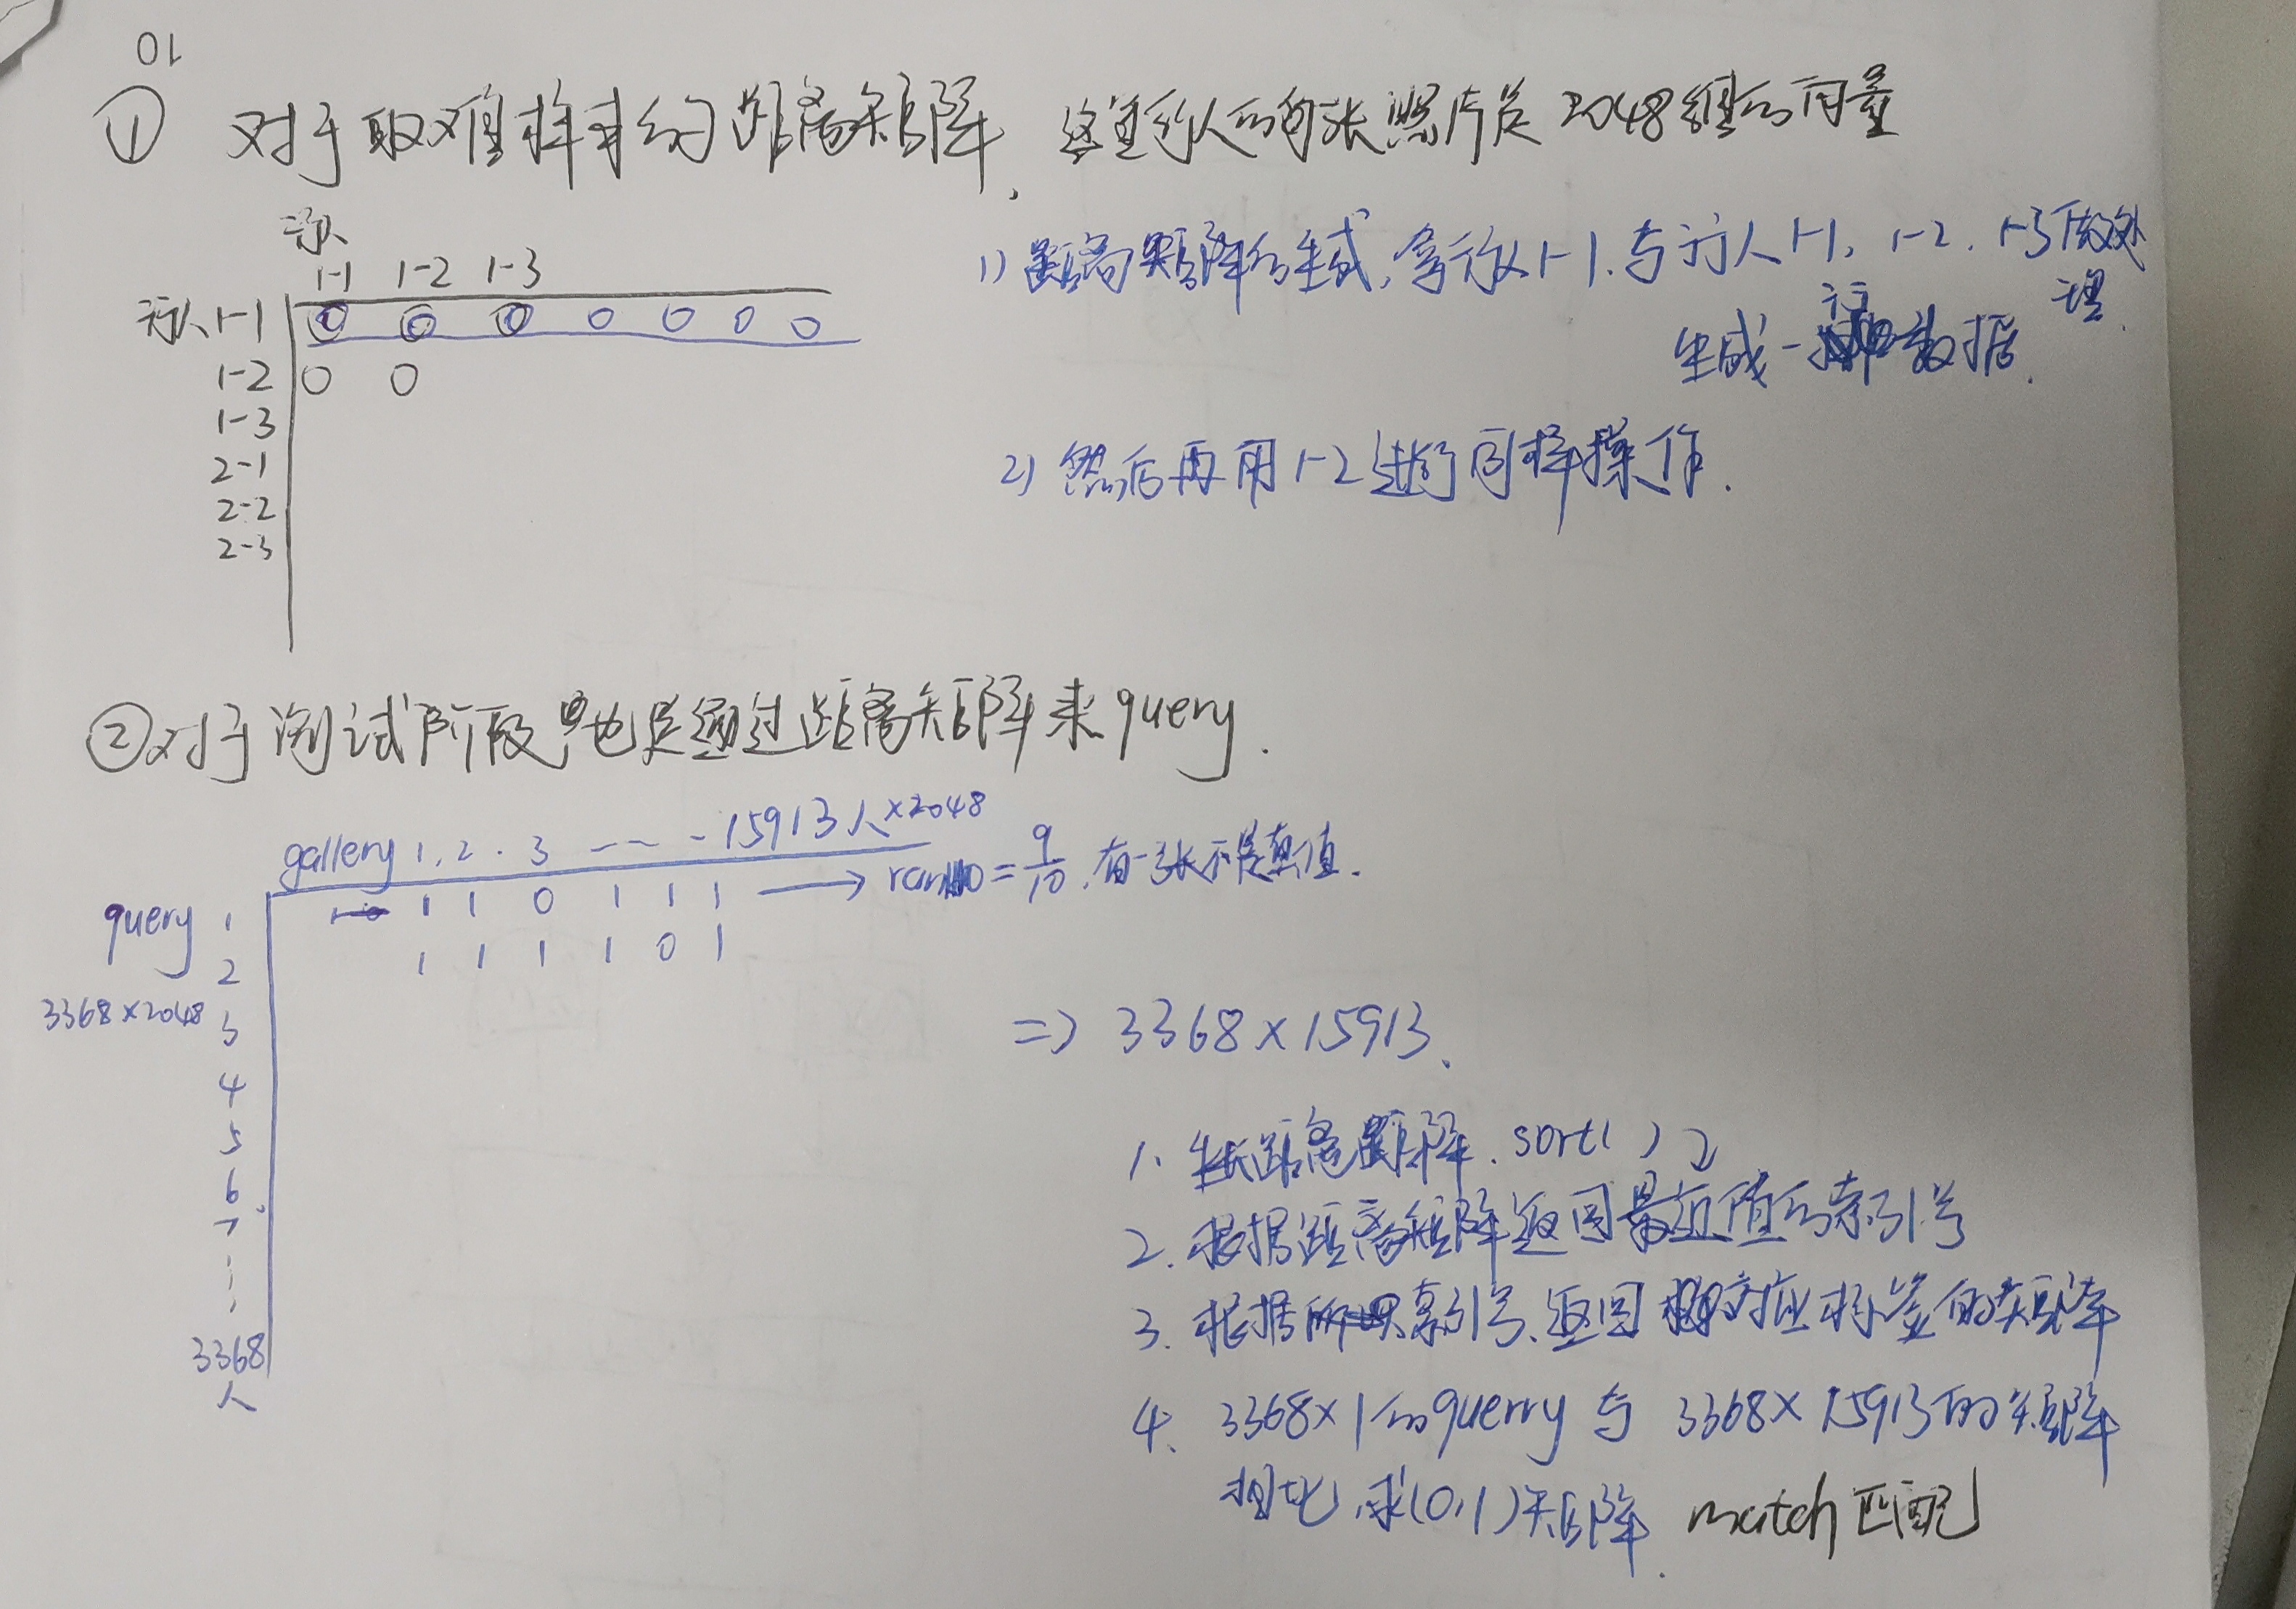 01
① 对于取难样本的距离矩阵, 这里行人的每张照片是 2048维的向量
行人
1-1 1-2 1-3
行人 1-1 0 0 0 0 0 0 0
1-2 0 0
1-3
2-1
2-2
2-3
1) 距离矩阵的生成, 拿行人1-1. 与行人1-1, 1-2. 1-3做处理.
生成一行数据.
2) 然后再用1-2进行同样操作.
② 对于测试阶段 也是通过距离矩阵来query.
gallery 1. 2. 3 --- 15913人×2048
query 1 1 1 0 1 1 1 → rank10 = 9/10, 有一张不是真值.
2 1 1 1 1 0 1
3368×2048 3
4
5
6
7
3368
人
=> 3368×15913、
1、生成距离矩阵. sort( )
2. 根据距离矩阵返回最近值的索引号
3. 根据 索引号、返回 对应标签的矩阵
4、3368×1的querry 与 3368×15913的矩阵
相比, 求(0,1)矩阵. match 匹配